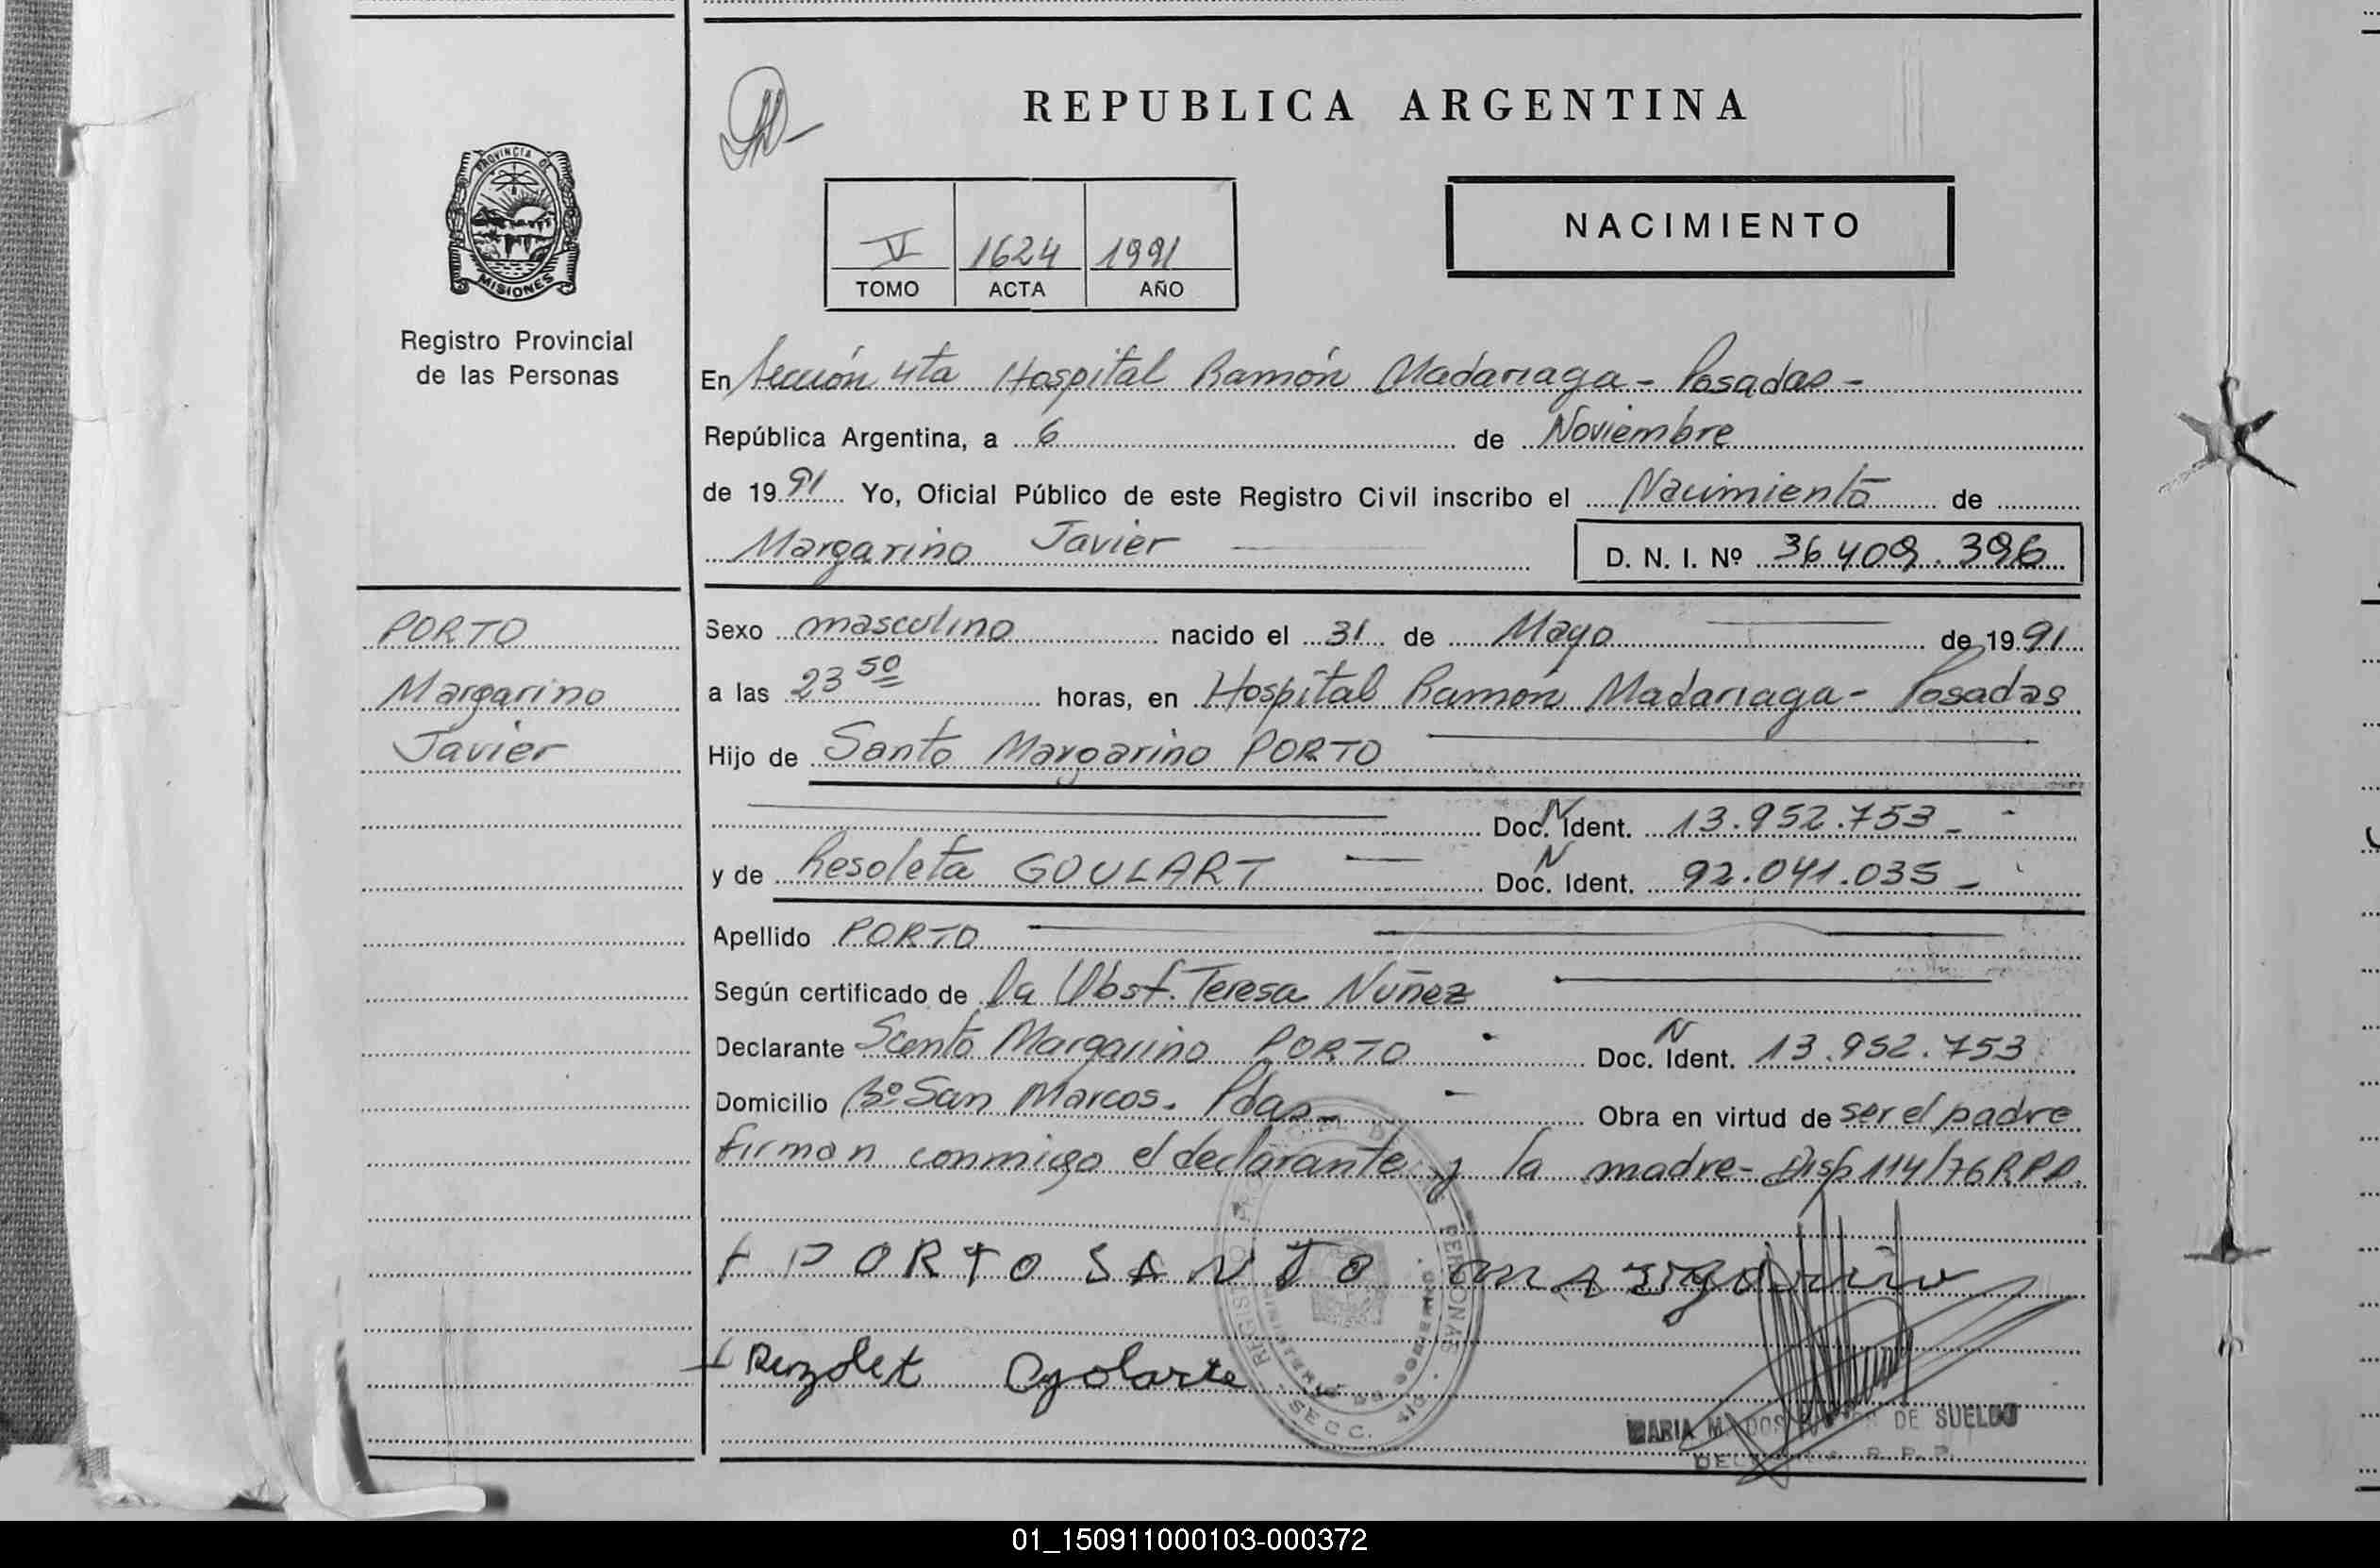 REPUBLICA ARGENTINA
PROVINCIA DE
MISIONES
Registro Provincial
de las Personas
V 1624 1991
TOMO ACTA AÑO
NACIMIENTO
En Sección 4ta Hospital Ramón Madariaga - Posadas -
República Argentina, a 6 de Noviembre
de 1991 Yo, Oficial Público de este Registro Civil inscribo el Nacimiento de
Margarino Javier D. N. I. Nº 36.409.396
PORTO
Margarino
Javier
Sexo masculino nacido el 31 de Mayo de 1991
a las 23 50 horas, en Hospital Ramón Madariaga - Posadas
Hijo de Santo Margarino PORTO
Doc. N Ident. 13.952.753 -
y de Resoleta GOULART Doc. N Ident. 92.041.035 -
Apellido PORTO
Según certificado de la Obst. Teresa Nuñez
Declarante Santo Margarino PORTO Doc. N Ident. 13.952.753
Domicilio Bº San Marcos. Pdas - Obra en virtud de ser el padre
firman conmigo el declarante y la madre - Disp 114/76 R.P.P.
+ PORTO SANTO margarino
REGISTRO PERSONAS
SECC.
MARIA M. DOS DE SUELDO
R. P. P.
01_150911000103-000372